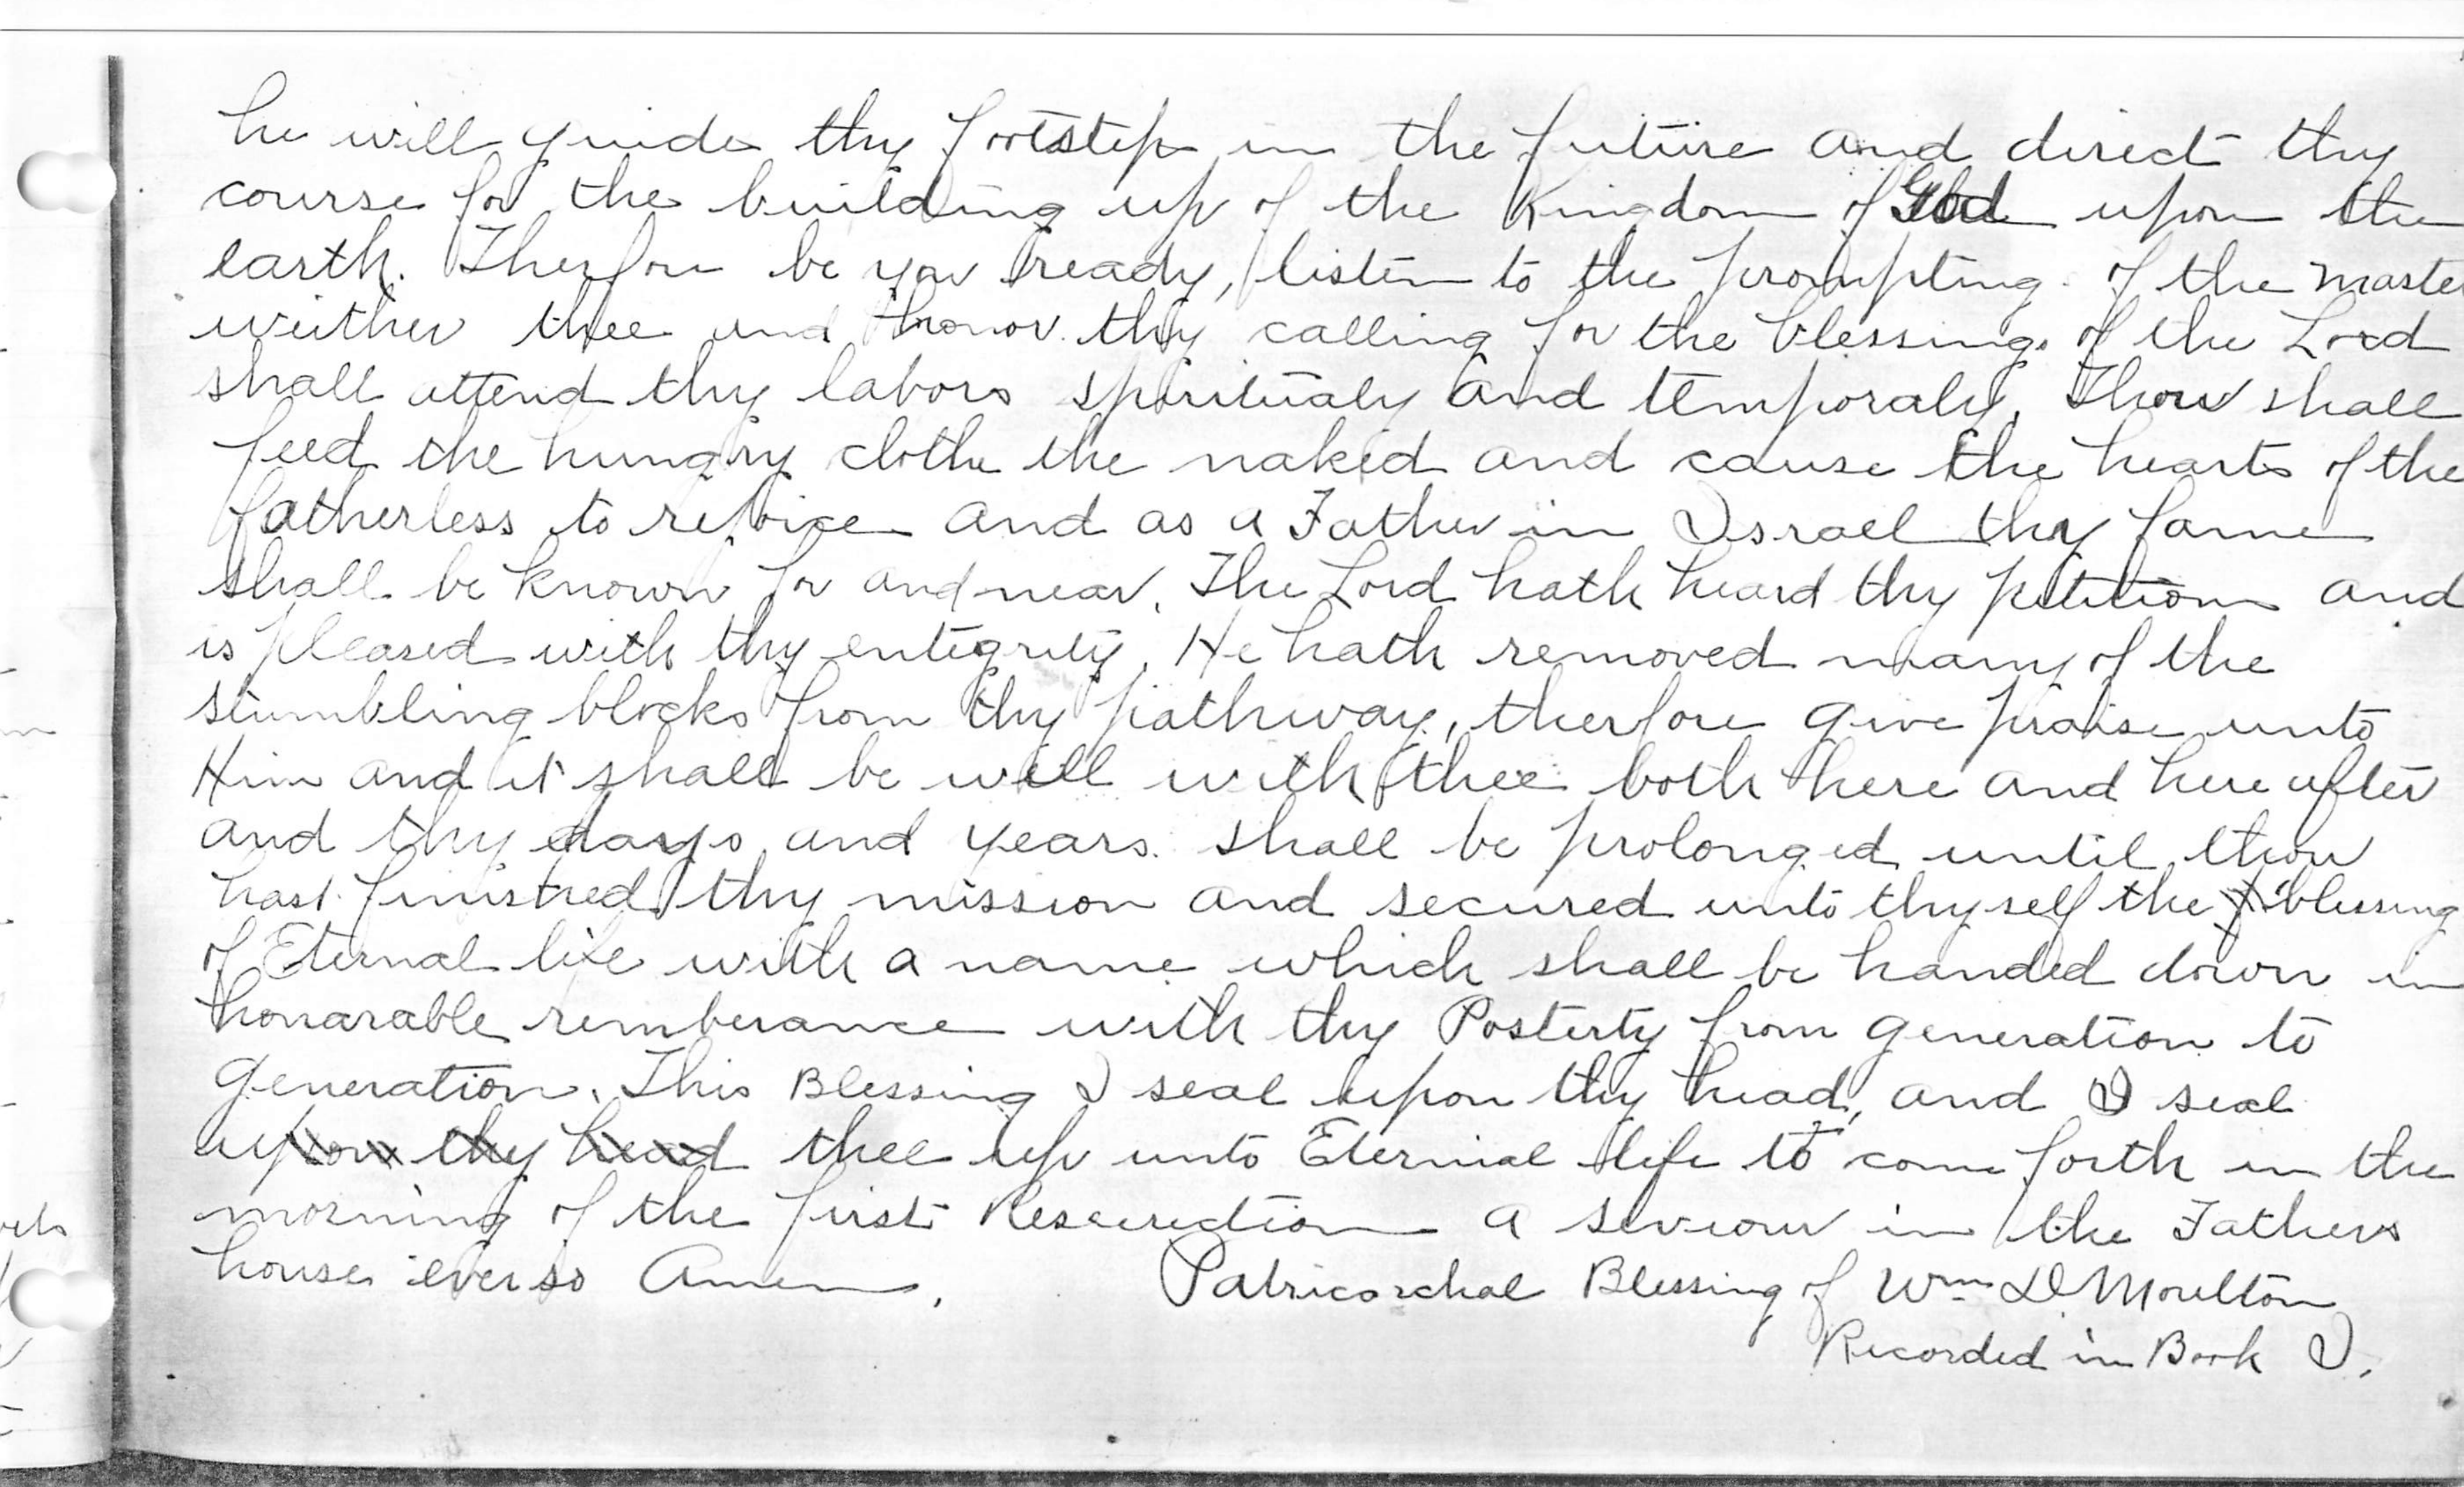 he will guide thy footstep in the future and direct thy
course for the building up of the Kingdom of God upon the
earth. Therfore be you ready, listen to the prompting of the Maste
weither thee and honor thy calling for the blessings of the Lord
shall attend thy labors spiritualy and temporaly, Thou shall
feed the hungry clothe the naked and cause the hearts of the
fatherless to rejoice and as a Father in Israel thy fame
shall be known for and near. The Lord hath heard thy petitions and
is pleased with thy entegrity, He hath removed many of the
stumbling blocks from thy pathway, therfore give praise unto
Him and it shall be well with thee both here and here after
and thy days and years shall be prolonged until thou
hast finistred thy mission and secured unto thyself the blessing
of Eternal life with a name which shall be handed down in
honarable remberance with thy Posterty from generation to
generation. This Blessing I seal upon thy head, and I seal
upon thy head thee up unto Eternal life to come forth in the
morning of the first Resurection a saviour in the Fathers
house even so Amen. Patricarchal Blessing of Wm D Moulton
Recorded in Book I.